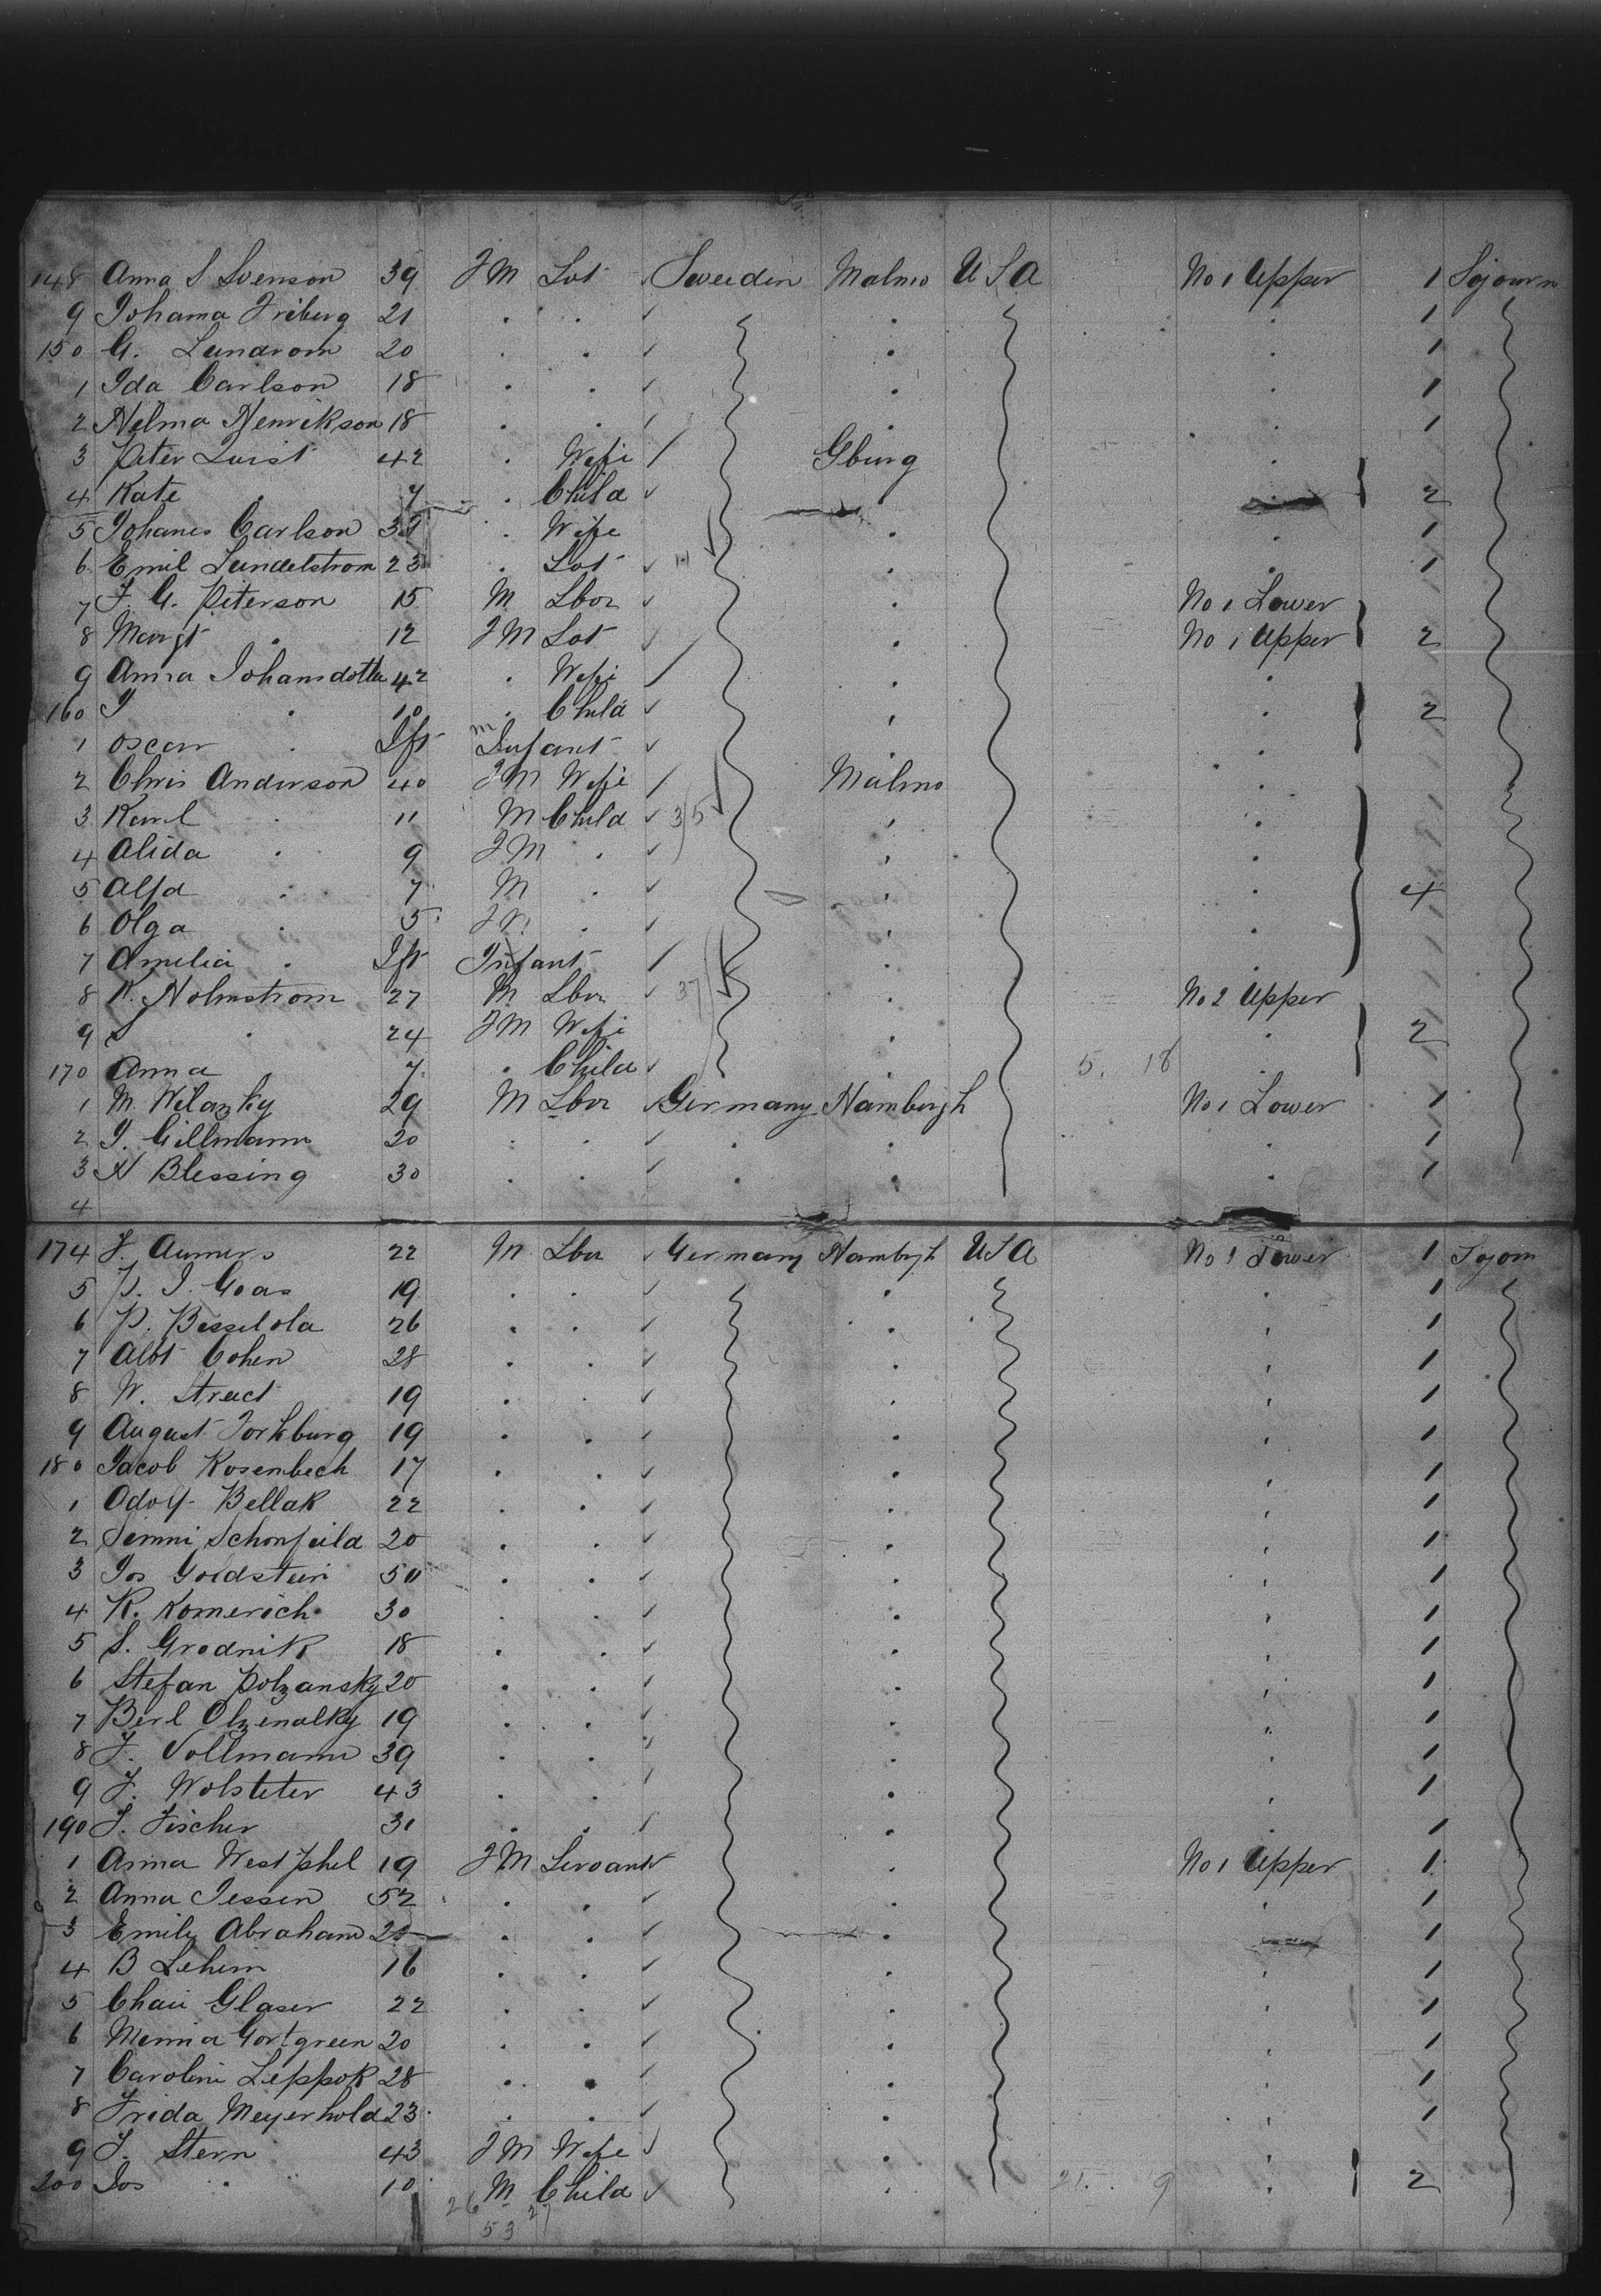 148 Anna S Svenson 39 FM Sot Sweeden Malmo USA No 1 Upper 1 Sojourn
9 Johama Friburg 21 . . . . 1
150 G. Lundrom 20 . . . . 1
1 Ida Carlson 18 . . . . 1
2 Helma Henrikson 18 . . . . 1
3 Peter Quist 42 . Wife Gburg .
4 Kate . 7 . Child . . 2
5 Johanes Carlson . Wife . . 1
6 Emil Lundelstrom 23 . Sot . . 1
7 J. G. Peterson 15 M Lbor . No 1 Lower
8 Margt . 12 FM Sot . No 1 Upper 2
9 Anna Johansdotter 42 . Wife . .
160 J . 10 . Child . . 2
1 Oscar . Ift m Infant . .
2 Chris Anderson 40 FM Wife Malmo .
3 Karl . 11 M Child 35 . .
4 Alida . 9 FM . . .
5 Alfd . 7 M . . . 4
6 Olga . 5 FM . . .
7 Amelia . Ift Infant . .
8 K. Holmstrom 27 M Lbor 37 . No 2 Upper
9 S . 24 FM Wife . . 2
170 Anna 7 . Child . 5. 18 .
1 M. Wilazky 29 M Lbor Germany Hamburgh No 1 Lower 1
2 J. Gillmann 20 . . . . . 1
3 H Blessing 30 . . . . . 1
4
174 J. Aumers 22 M Lbor Germany Hambgh USA No 1 Lower 1 Sojorn
5 P. J. Goas 19 . . . . 1
6 P. Besselola 26 . . . . 1
7 Albt Cohen 28 . . . . 1
8 W. Struct 19 . . . . 1
9 August Forkburg 19 . . . . 1
180 Jacob Rosenbech 17 . . . . 1
1 Adolf Bellak 22 . . . . 1
2 Simmi Schonfeild 20 . . . . 1
3 Jos Goldstein 50 . . . . 1
4 R. Komerich 30 . . . . 1
5 S. Grodnik 18 . . . . 1
6 Stefan Polzansky 20 . . . . 1
7 Berl Olzenalky 19 . . . . 1
8 J. Vollmann 39 . . . . 1
9 J. Wolsteter 43 . . . . 1
190 J. Fischer 31 . . . . 1
1 Anna Westphel 19 FM Servant . No 1 Upper 1
2 Anna Jessen 52 . . . . 1
3 Emily Abraham . . . 1
4 B Lehim 16 . . . . 1
5 Chaii Glaser 22 . . . . 1
6 Minna Gortgreen 20 . . . . 1
7 Carolini Leppok 28 . . . . 1
8 Frida Meyerhold 23 . . . . 1
9 J. Stern 43 FM Wife . .
200 Jos . 10 M Child . 21. 9 . 2
26 27
53